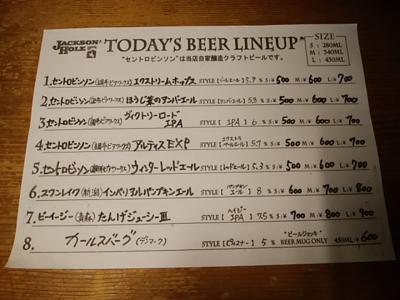 JACKSON HOLE TODAY'S BEER LINEUP
"セントロビンソン"は当店自家醸造クラフトビールです。
SIZE
S : 280ML
M : 340ML
L : 450ML
1. セントロビンソン エクストリームホップス STYLE [ペールエール] 5.7% S:¥500 M:¥600 L:¥700
2. セントロビンソン ほうじ茶のアンバーエール STYLE [アンバーエール] 5.3% S:¥500 M:¥600 L:¥700
3. セントロビンソン ヴィクトリーロード IPA STYLE [IPA] 6% S:¥500 M:¥600 L:¥700
4. セントロビンソン アルティメEXP STYLE [エクストラペールエール] 5.7% S:¥500 M:¥600 L:¥700
5. セントロビンソン ウィンターレッドエール STYLE [レッドエール] 5.3% S:¥500 M:¥600 L:¥700
6. スワンレイク(新潟) インペリアルパンプキンエール STYLE [パンプキンエール] 8% S:¥600 M:¥700 L:¥800
7. ビーイージー(青森) たんげジューシーIII STYLE [ヘイジーIPA] 7.5% S:¥700 M:¥800 L:¥900
8. カールスバーグ(デンマーク) STYLE [ピルスナー] 5% "ビールジョッキ" BEER MUG ONLY 450ML ¥600